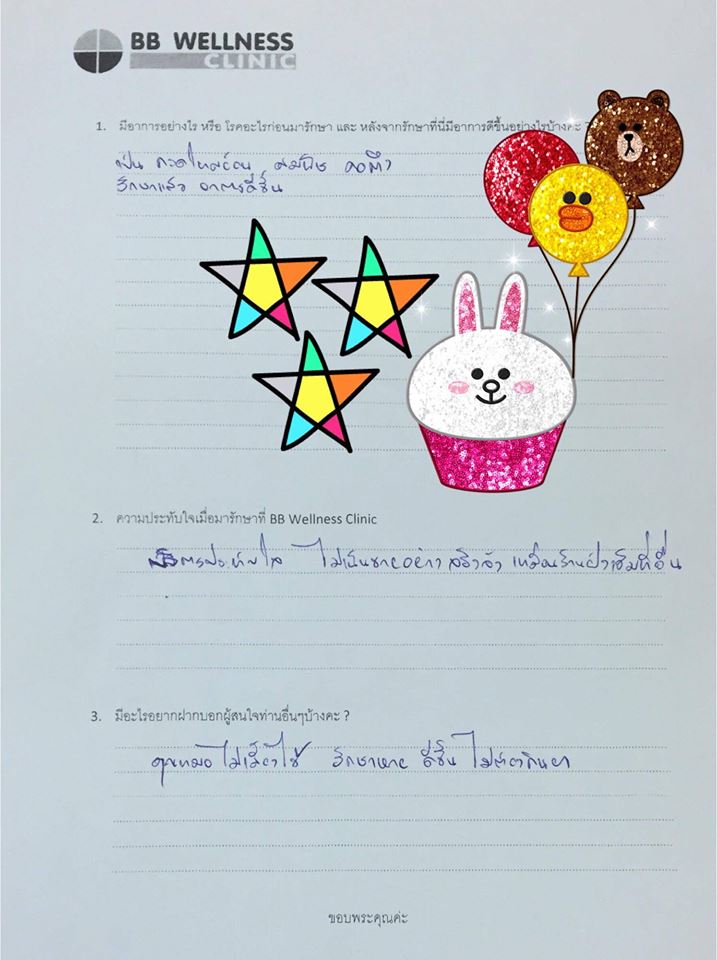 BB WELLNESS
CLINIC
1. มีอาการอย่างไร หรือ โรคอะไรก่อนมารักษา และ หลังจากรักษาที่นี่มีอาการดีขึ้นอย่างไรบ้างคะ ?
เป็น กรดไหลย้อน คอตึง
รักษาแล้ว อาการดีขึ้น
2. ความประทับใจเมื่อมารักษาที่ BB Wellness Clinic
ไม่เน้นขายอย่าง เหมือนร้านฝังเข็มที่อื่น
3. มีอะไรอยากฝากบอกผู้สนใจท่านอื่นๆบ้างคะ ?
คุณหมอ รักษาหาย ดีขึ้น ไม่ต้องกินยา
ขอบพระคุณค่ะ